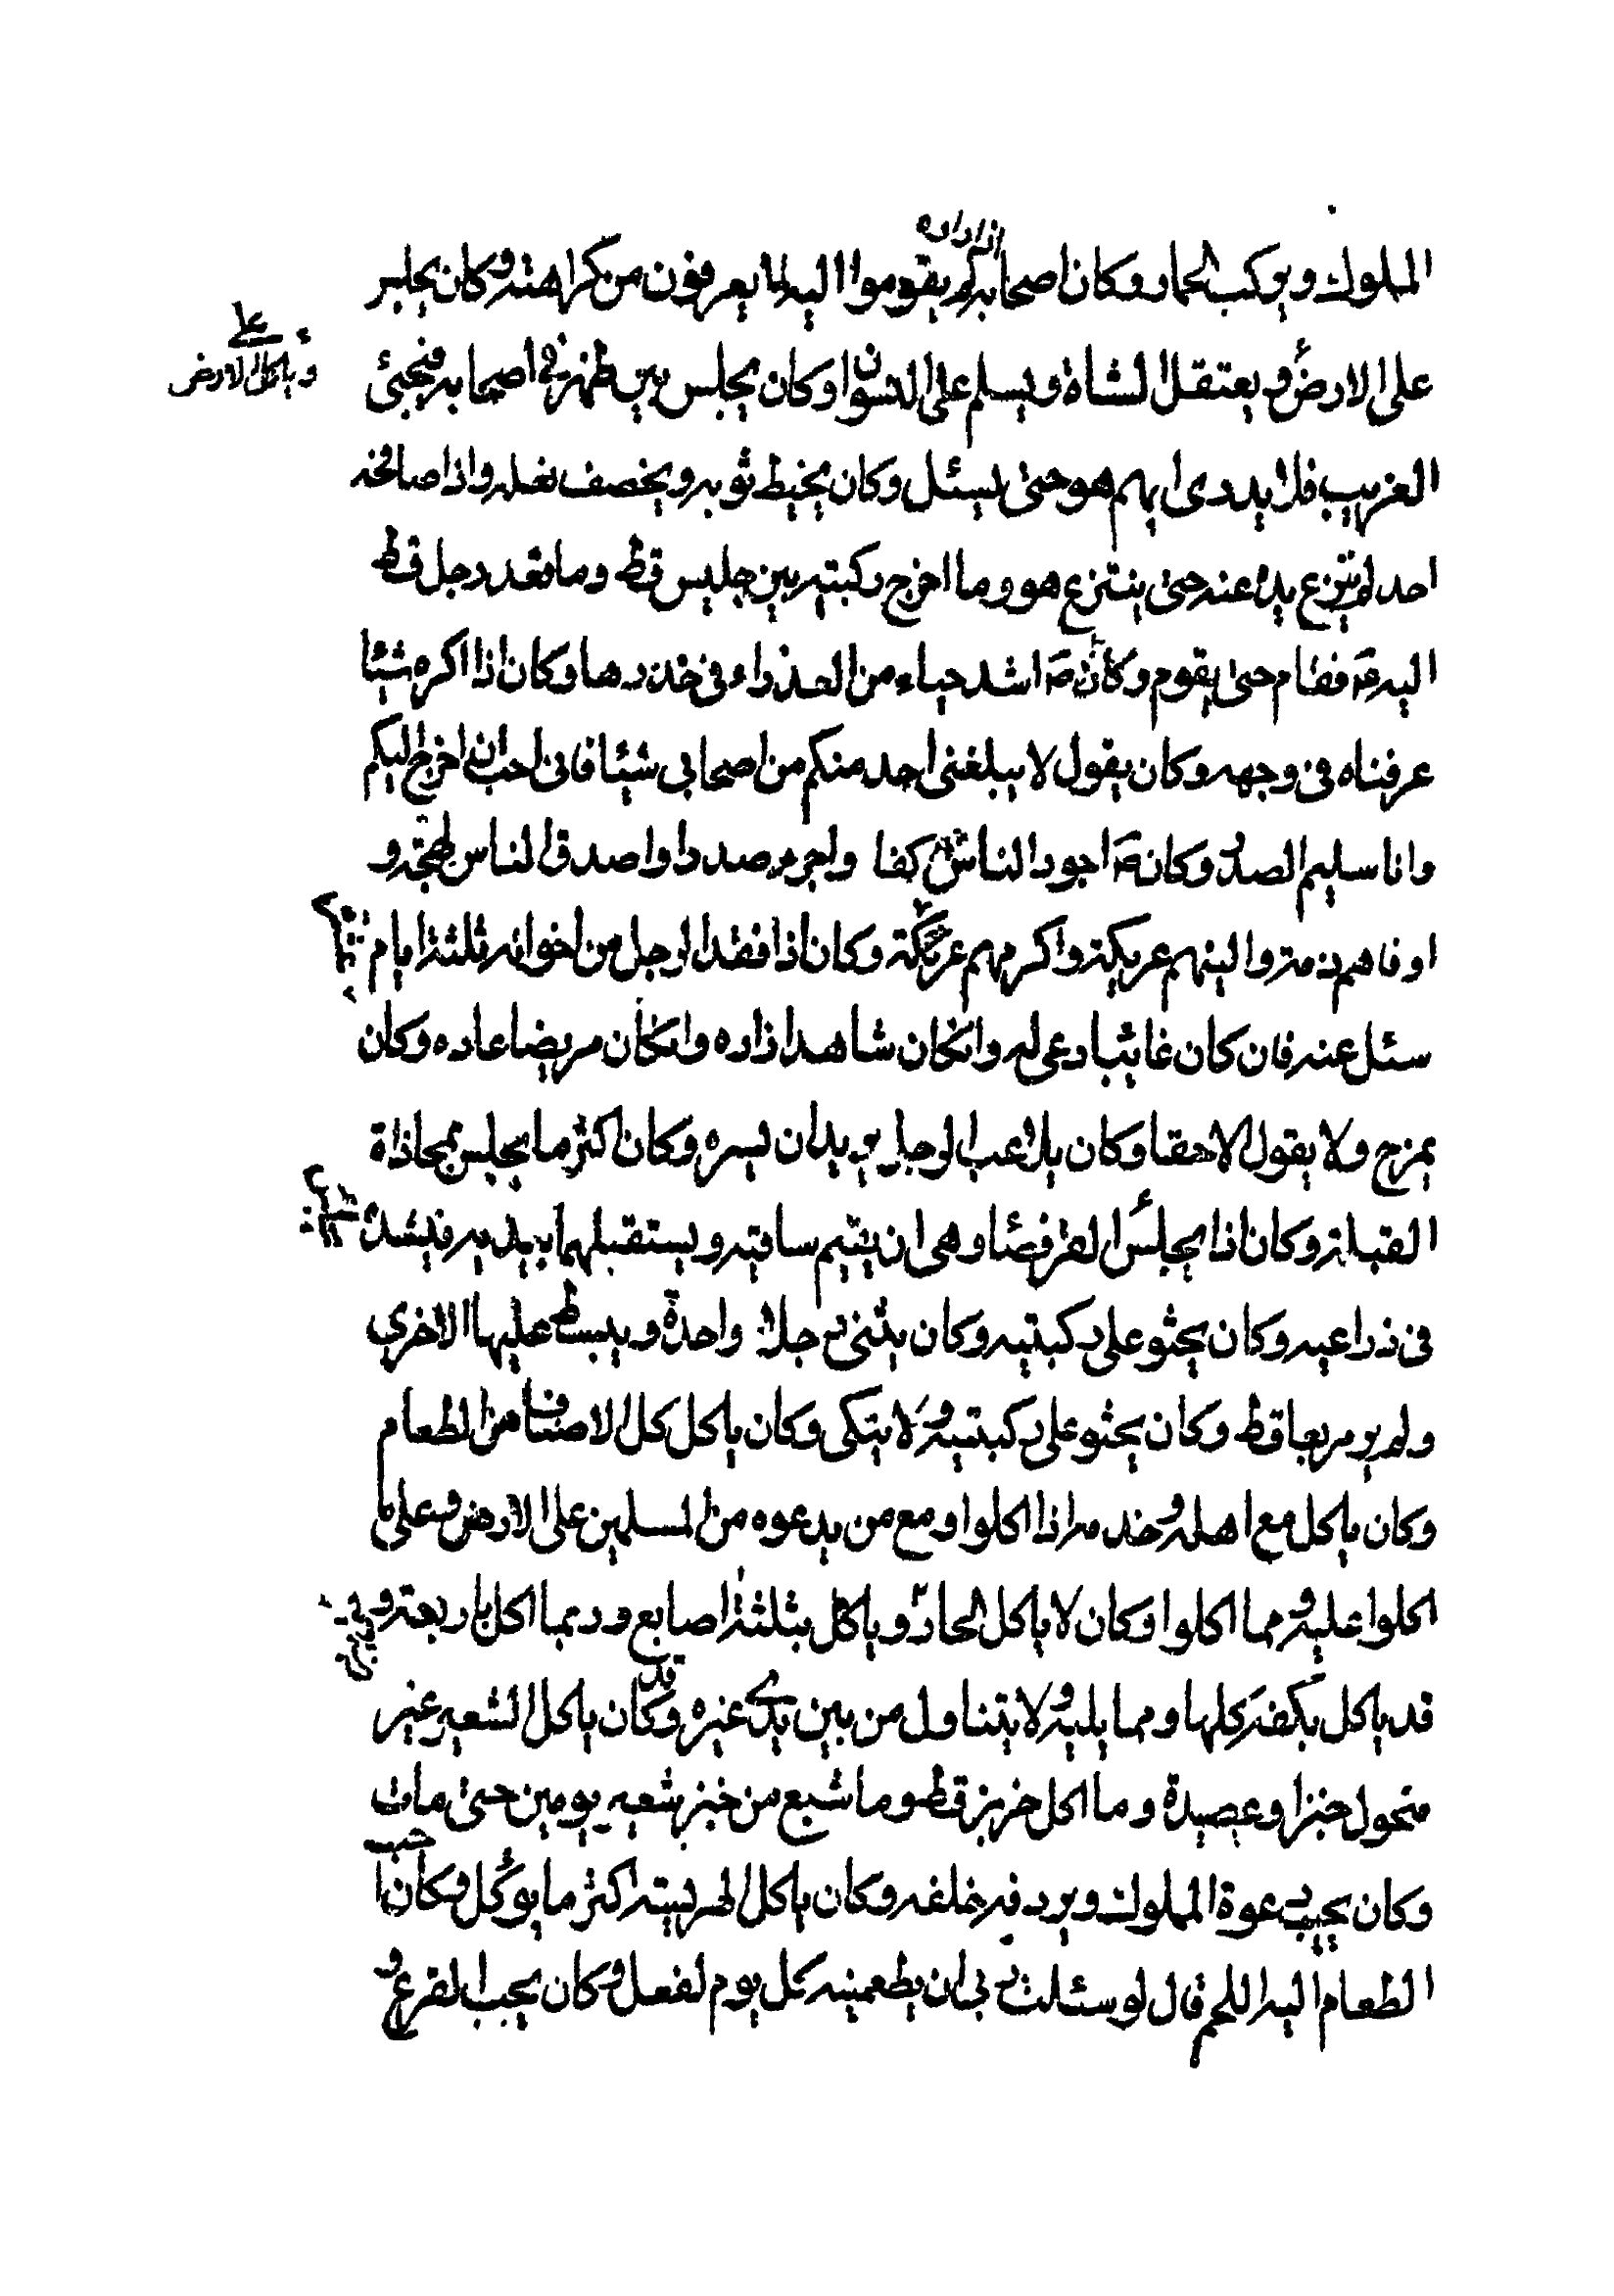 المملوك ويركب الحمار وكان اصحابه اذا راوه لم يقوموا اليه لما يعرفون من كراهته وكان يجلس
على الارض ويعتقل الشاة ويسلم على النسوان وكان يجلس بين ظهرانى اصحابه فيجيئ
وياكل على الارض
الغريب فلا يدرى ايهم هو حتى يسئل وكان يخيط ثوبه ويخصف نعله واذا صافحه
احد لم ينزع يده عنه حتى ينتزع هو وما اخرج ركبتيه بين جليس قط وما قعد رجل قط
اليه فقام حتى يقوم وكان اشد حياء من العذراء فى خدرها وكان اذا اكره شيئا
عرفناه فى وجهه وكان يقول لا يبلغنى احد منكم من اصحابى شيئا فانى احب ان اخرج اليكم
وانا سليم الصدر وكان اجود الناس كفا واجرء صدرا واصدق الناس لهجة و
اوفاهم ذمة والينهم عريكة واكرمهم عريكة وكان اذا فقد الرجل من اخوانه ثلثة ايام
سئل عنه فان كان غائبا دعى له وان كان شاهدا زاره وان كان مريضا عاده وكان
يمزح ولا يقول الا حقا وكان يلاعب الرجل يريد ان يسره وكان اكثر ما يجلس بمحاذاة
القبلة وكان اذا يجلس القرفصئا وهى ان يقيم ساقيه ويستقبلهما بيديه فيشد
فى ذراعيه وكان يجثو على ركبتيه وكان يثنى رجلا واحدة ويبسط عليها الاخرى
ولم ير مربعا قط وكان يجثو على ركبتيه ولا يتكى وكان ياكل كل الاصناف من الطعام
وكان ياكل مع اهله وخدمه اذا اكلوا ومع من يدعوه من المسلمين على الارض وعلى ما
اكلوا عليه ومما اكلوا وكان لا ياكل الحار وياكل بثلثة اصابع وربما اكل باربعة و
قد ياكل بكفه كلها ومما يليه ولا يتناول من بين يدى غيره وقد كان ياكل الشعير غير
منخول خبزا وعصيدة وما اكل خبز بر قط وما شبع من خبز شعير يومين حتى مات
وكان يجيب دعوة المملوك ويردفه خلفه وكان ياكل الهريسة اكثر ما يوكل وكان احب
الطعام اليه اللحم قال لو سئلت ربى ان يطعمنيه كل يوم لفعل وكان يحب القرع و